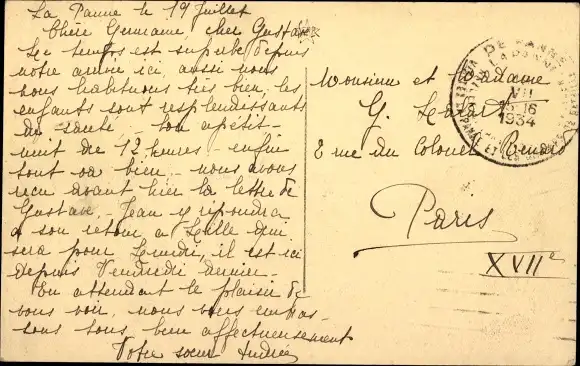 La Panne le 19 Juillet
Chère Germaine, cher Gustave
Le temps est superbe depuis
notre arrivée ici, aussi nous
nous habituons très bien, les
enfants sont resplendissants
de santé, bon apétit
nuit de 12 heures - enfin
tout va bien - nous avons
reçu avant hier la lettre de
Gustave - Jean y répondra
à son retour à Lille qui
sera pour Lundi, il est ici
depuis Vendredi dernier -
En attendant le plaisir de
vous voir, nous vous embras-
sons tous bien affectueusement
Votre sœur Andrée
Monsieur et Madame
G.
2 rue du Colonel Renard
Paris
XVIIe
DE PANNE
LA PANNE
VII
15-16
1934